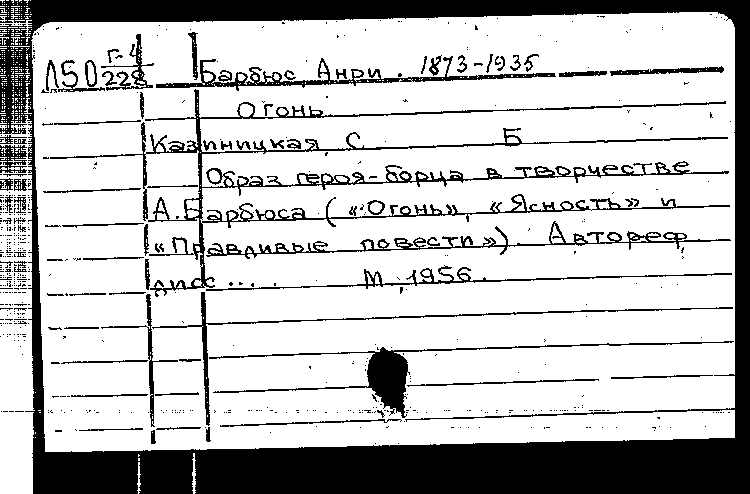 Л50 Г-4/228 Барбюс, Анри. 1873-1935
Огонь
Казиницкая, С Б
Образ героя-борца в творчестве
А. Барбюса («Огонь», «Ясность» и
«Правдивые повести»). Автореф.
дисс.... М., 1956.